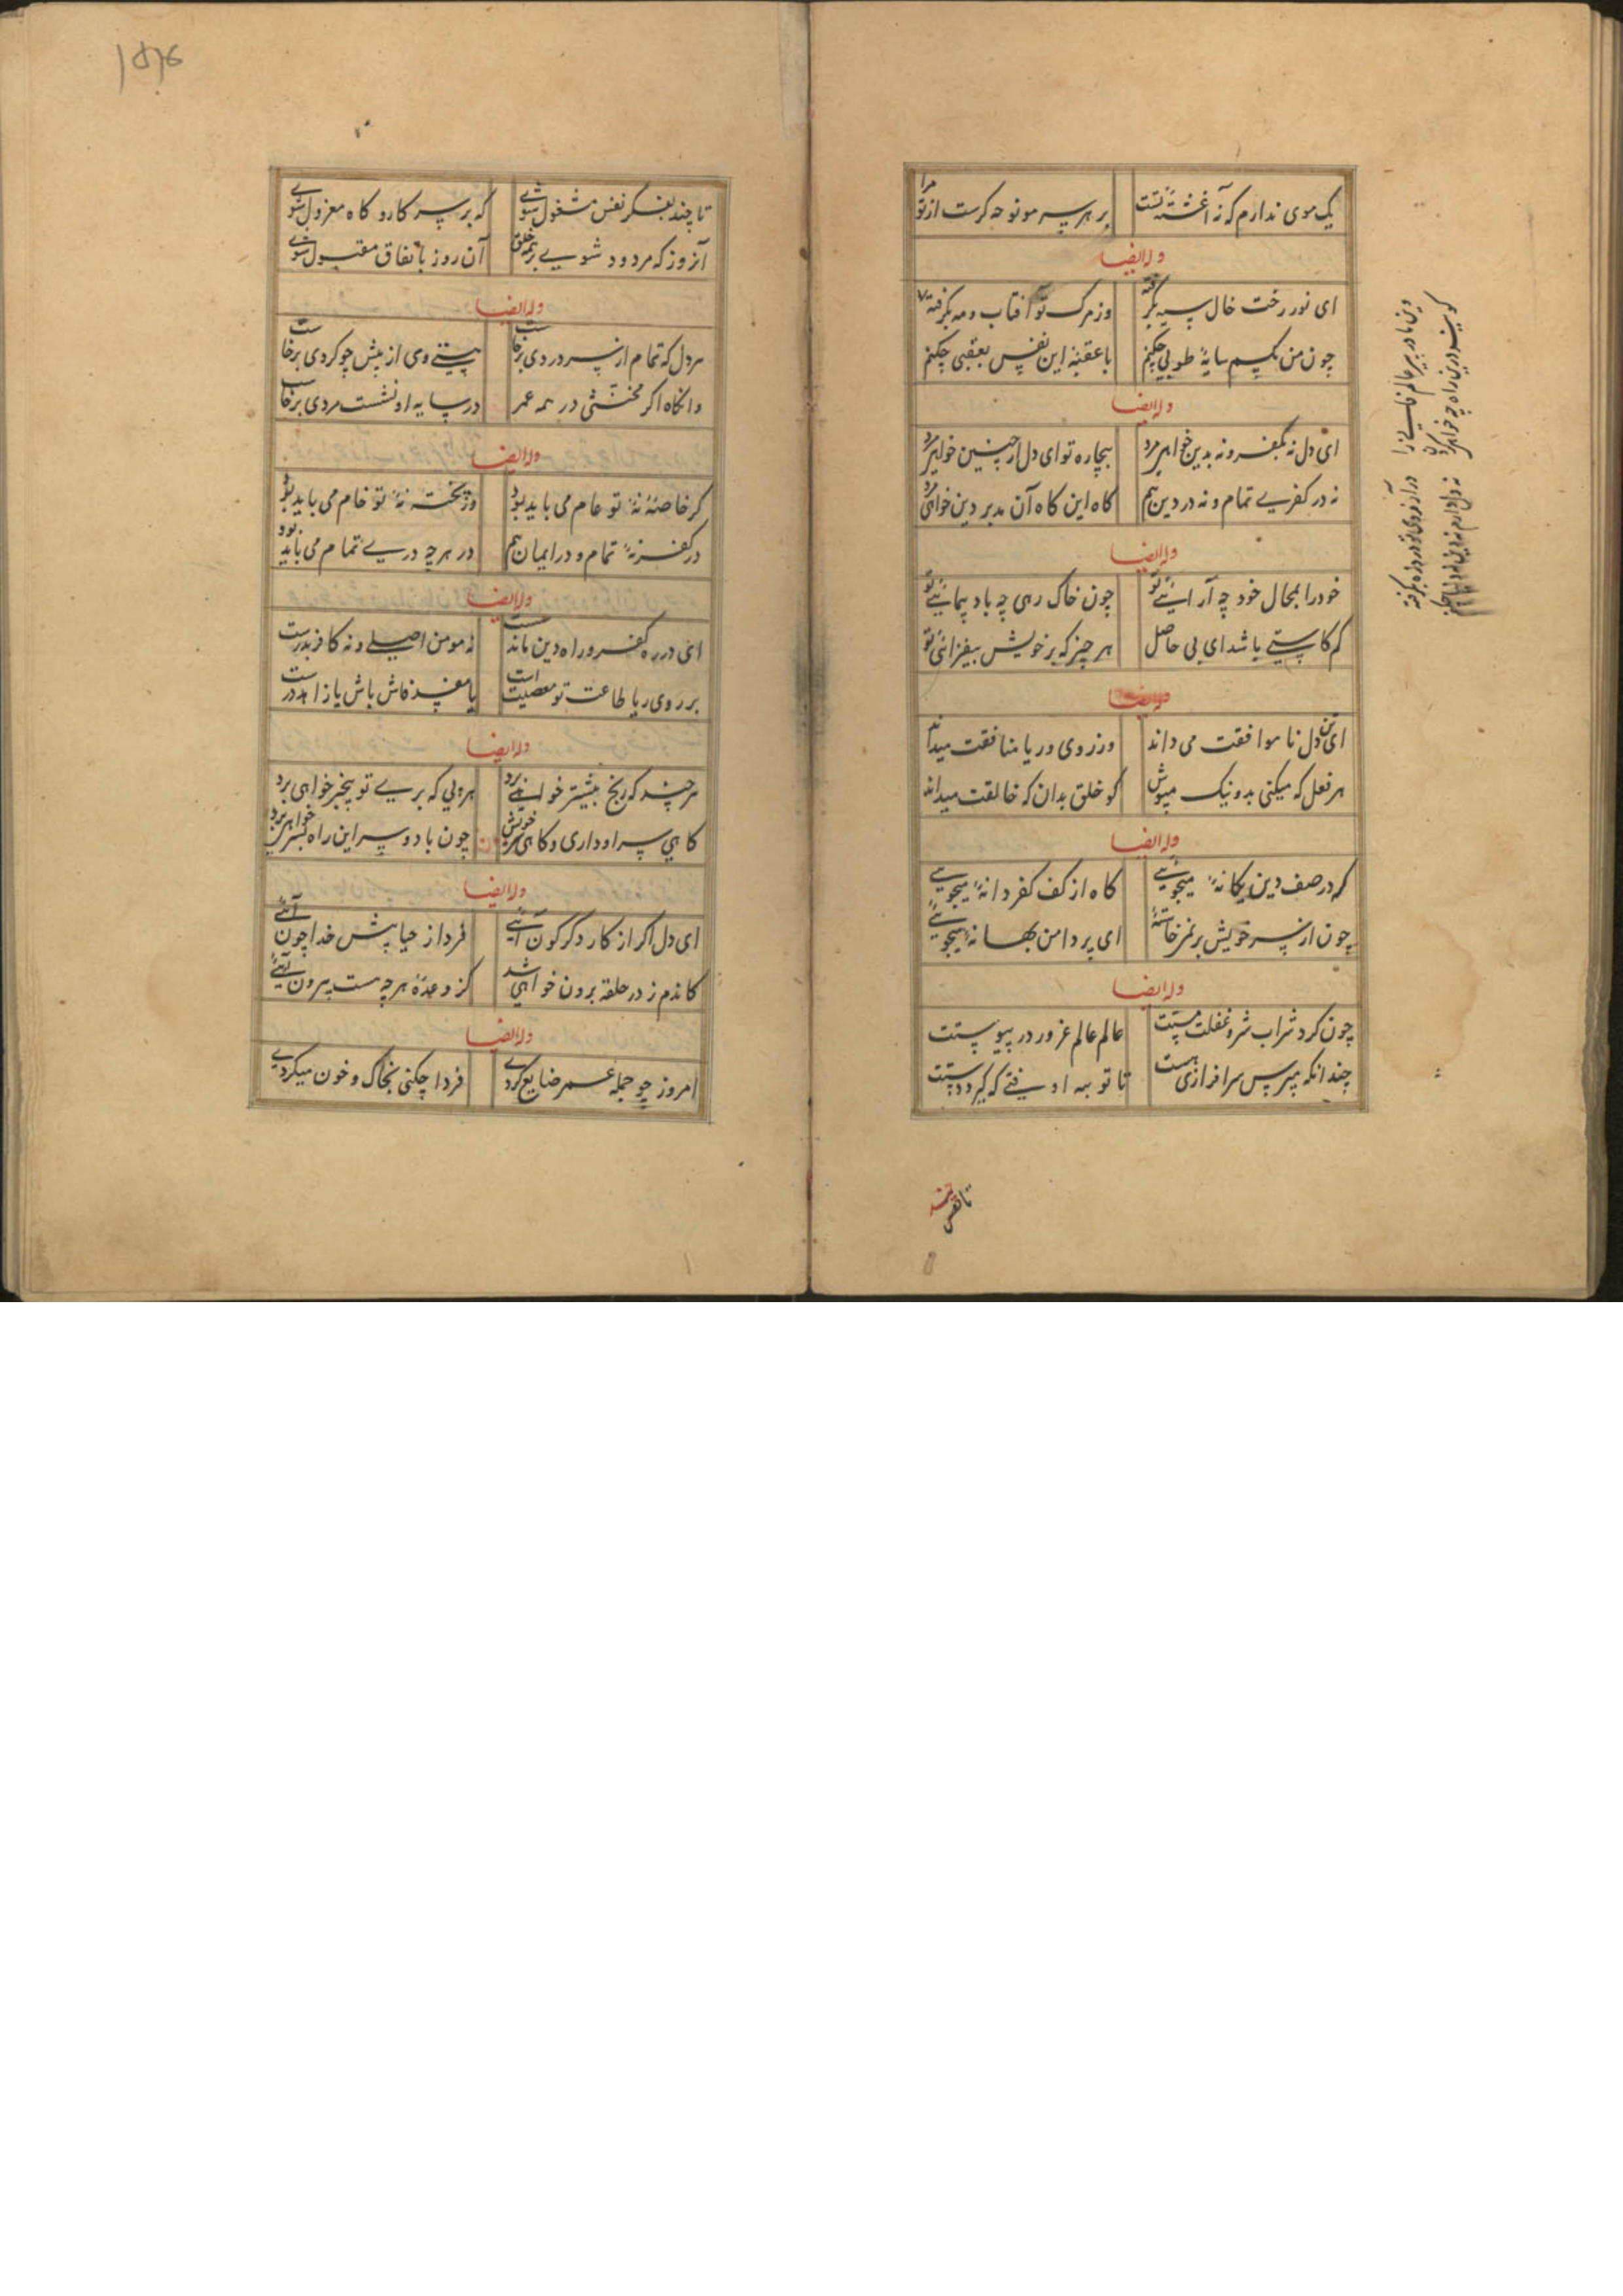 یک موی ندارم که نه آغشته تست
بر هر سر مو نوحه گرست از تو مرا
وله ایضا
ای نور رخت خال سیه بگرفته
وز مرک تو آفتاب و مه بگرفته
چون من سایه طوبی چکنم
با عقبه این نفس بعقبی چکنم
وله ایضا
ای دل نه بکفر و نه بدین خواهی مرد
بیچاره تو ای دل ار چنین خواهی مرد
نه در کفری تمام و نه در دین هم
گاه این گاه آن مدبر دین خواهی مرد
وله ایضا
خود را بمحال خود چه آرائی تو
چون خاک رهی چه باد پیمائی تو
کم کاستی باشد ای بی حاصل
هر چیز که بر خویش بیفزائی تو
وله ایضا
ای تن دل ناموافقت می داند
وز روی و ریا منافقت میداند
هر فعل که میکنی بد و نیک مپوش
گو خلق بدان که خالقت میداند
وله ایضا
که در صف دین یگانهٔ میجوئی
گاه از کف کفر دانهٔ میجوئی
چون از سر خویش بر نمیخاستهٔ
ای بر دامن بهانه میجوئی
وله ایضا
چون کرد شراب شر و غفلت مستت
عالم عالم غرور در پیوستت
چندانکه بپرس سرافرازی هست
تا تو به او فتی که گیرد دستت
تا نفس
تا چند بفکر نفس مشغول شوی
که بر سر کار و گاه معزول شوی
آنروز که مردود شوی بر همه خلق
آن روز باتفاق مقبول شوی
وله ایضا
هر دل که تمام از سر دردی برخاست
هستی وی از پیش چو گردی برخاست
وانگاه اگر مخنثی در همه عمر
در سایه او نشست مردی برخاست
وله ایضا
گر خاصهٔ نهٔ تو عام می باید بود
ور پخته نهٔ تو خام می باید بود
در کفر نهٔ تمام و در ایمان هم
در هرچه دری تمام می باید بود
وله ایضا
ای در ره کفر و راه دین مانده سست
نه مومن اصلی و نه کافر بدرست
بر روی ریا طاعت تو معصیت است
یا مفسد فاش باش یا زاهد درست
وله ایضا
هر چند که رنج بیشتر خواهی برد
هر پی که بری تو بیخبر خواهی برد
گاهی سر او داری و گاهی سر خویش
چون با دو سر این راه بسر خواهی برد
وله ایضا
ای دل اگر از کار دگرگون آئی
فردا ز حیا پیش خدا چون آئی
کاندم ز در حلقه برون خواهی شد
کز وعدهٔ هرچه هست بیرون آئی
وله ایضا
امروز چو جمله عمر ضایع کردی
فردا چکنی بخاک و خون میگردی